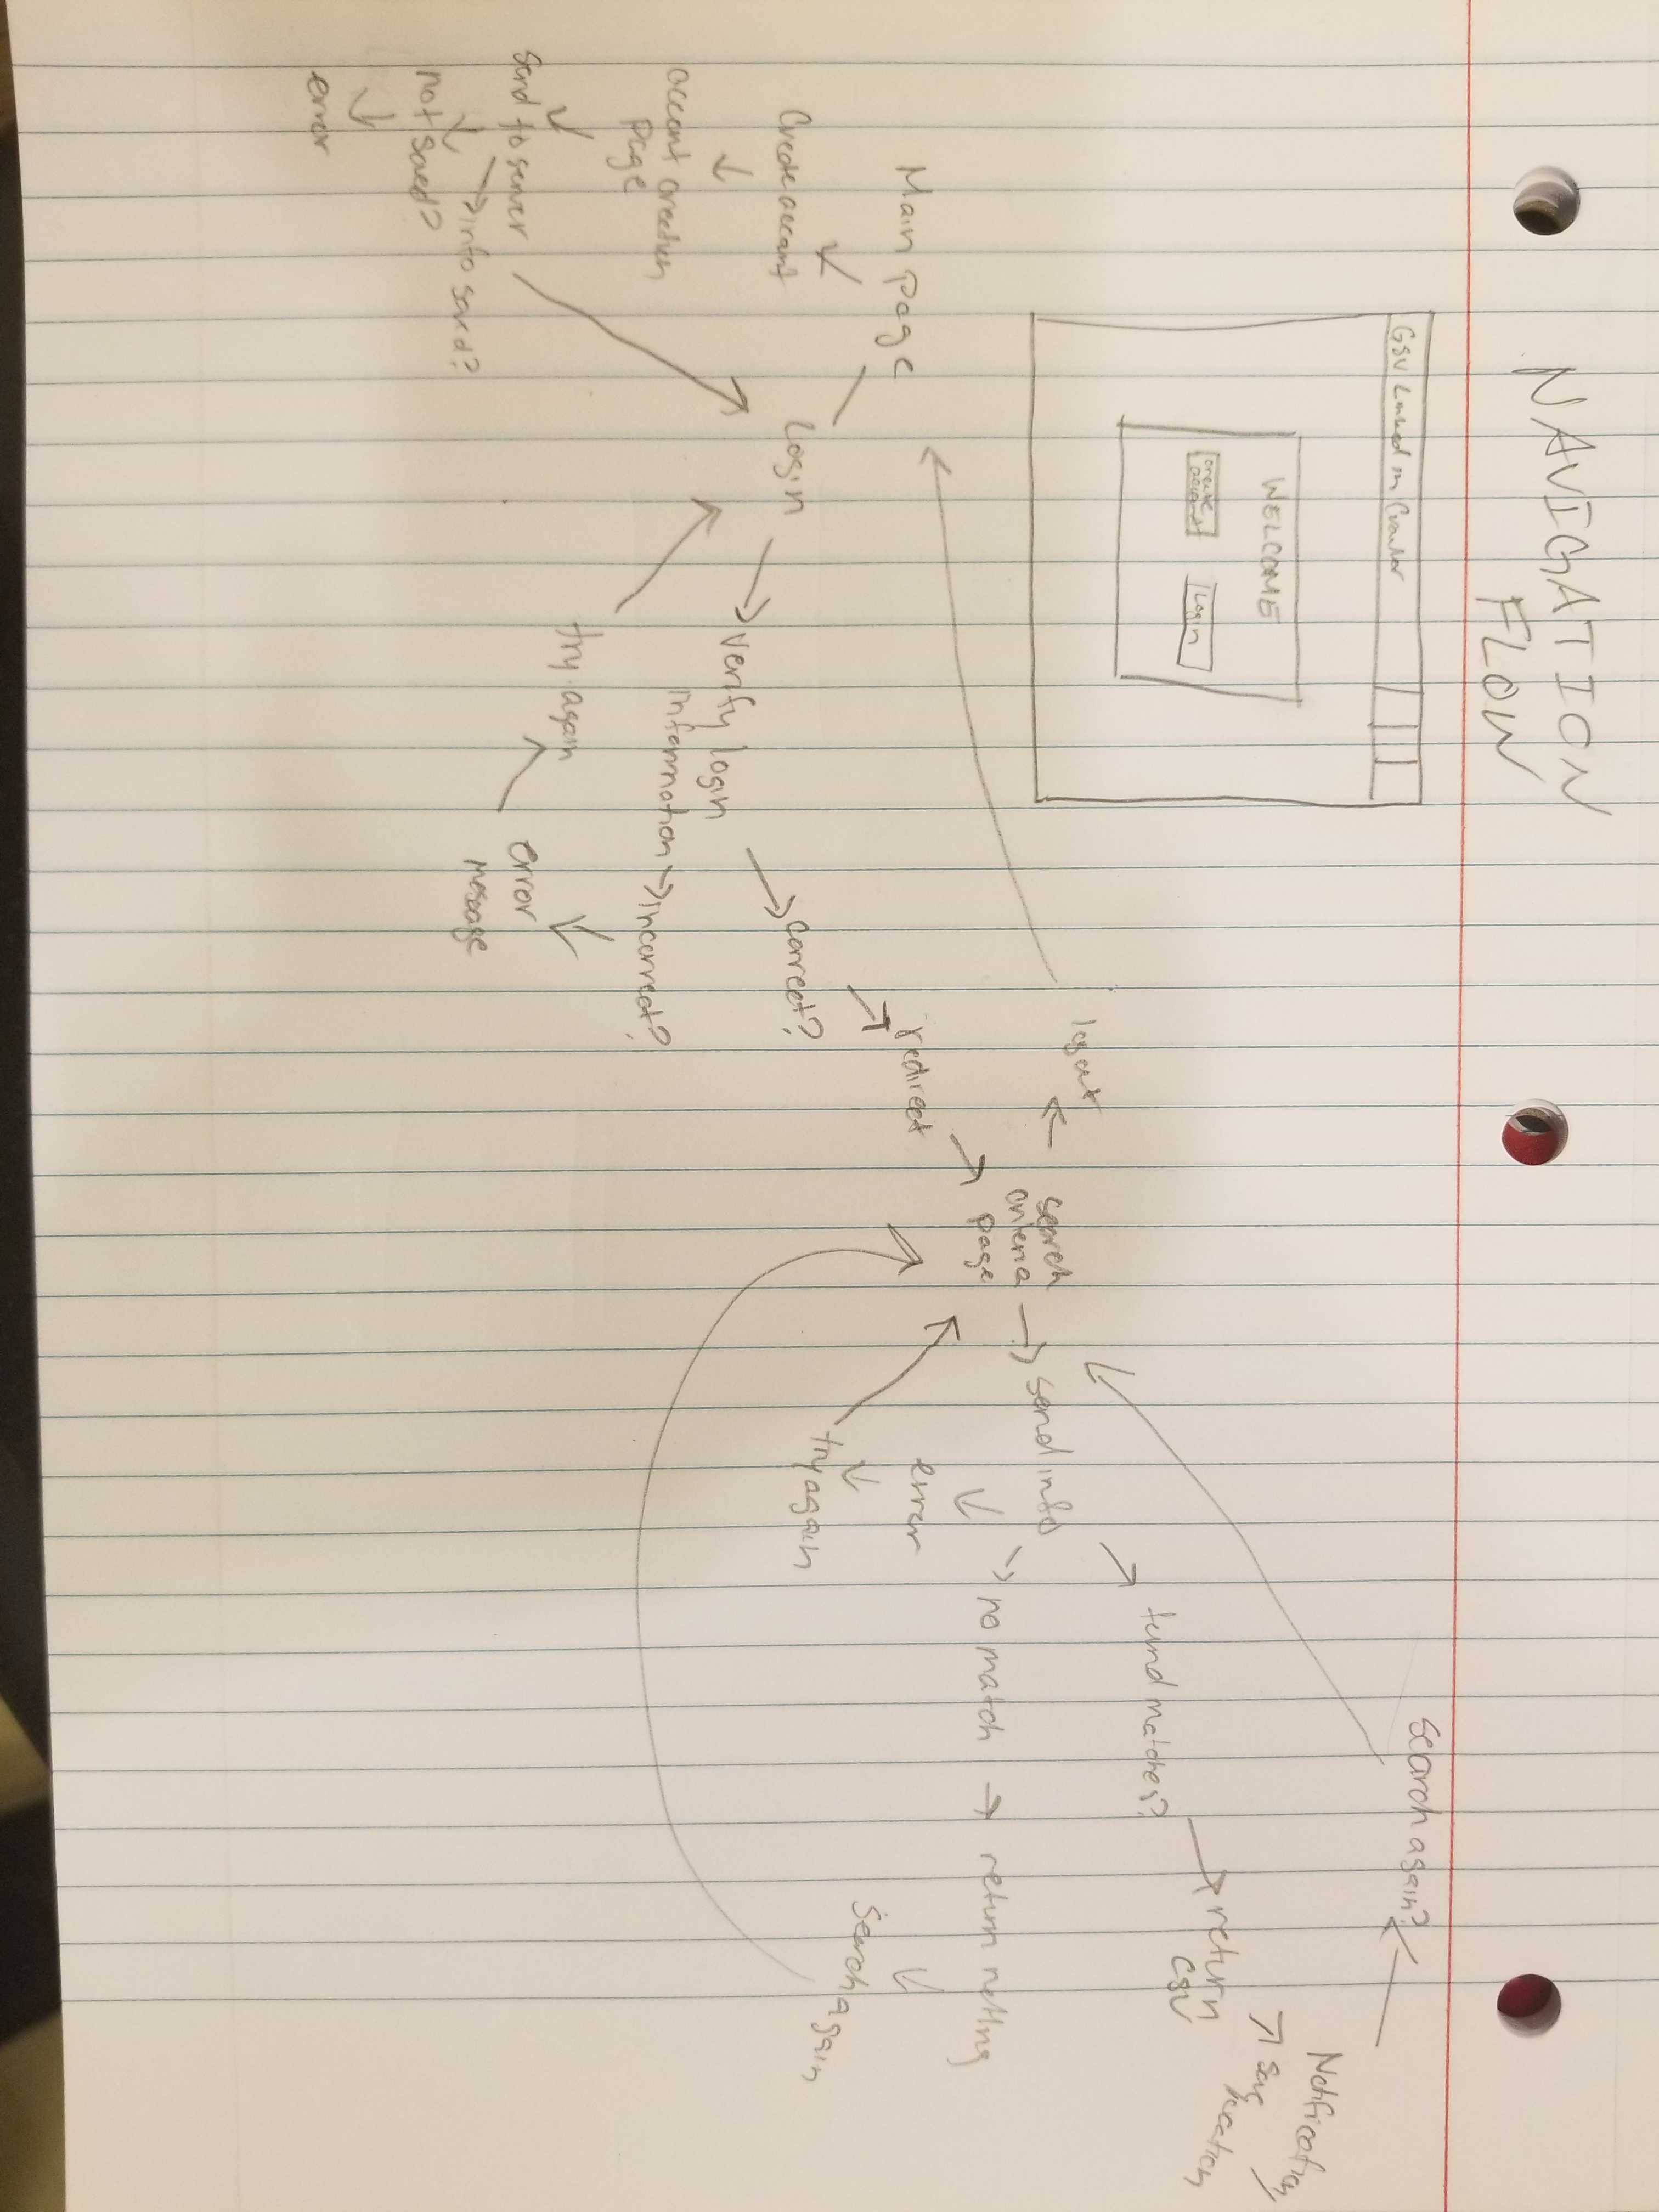 NAVIGATION
FLOW
GSU Linked in Crawler
WELCOME
create
account
Login
Main Page
Create account
account creation
page
send to server
info saved?
not saved?
error
Login
verify login
information
incorrect?
error
message
try again
correct?
redirect
logout
search
criteria
page
send info
error
try again
found matches?
return
CSV
save
location
Notification
search again?
no match
return nothing
Search again